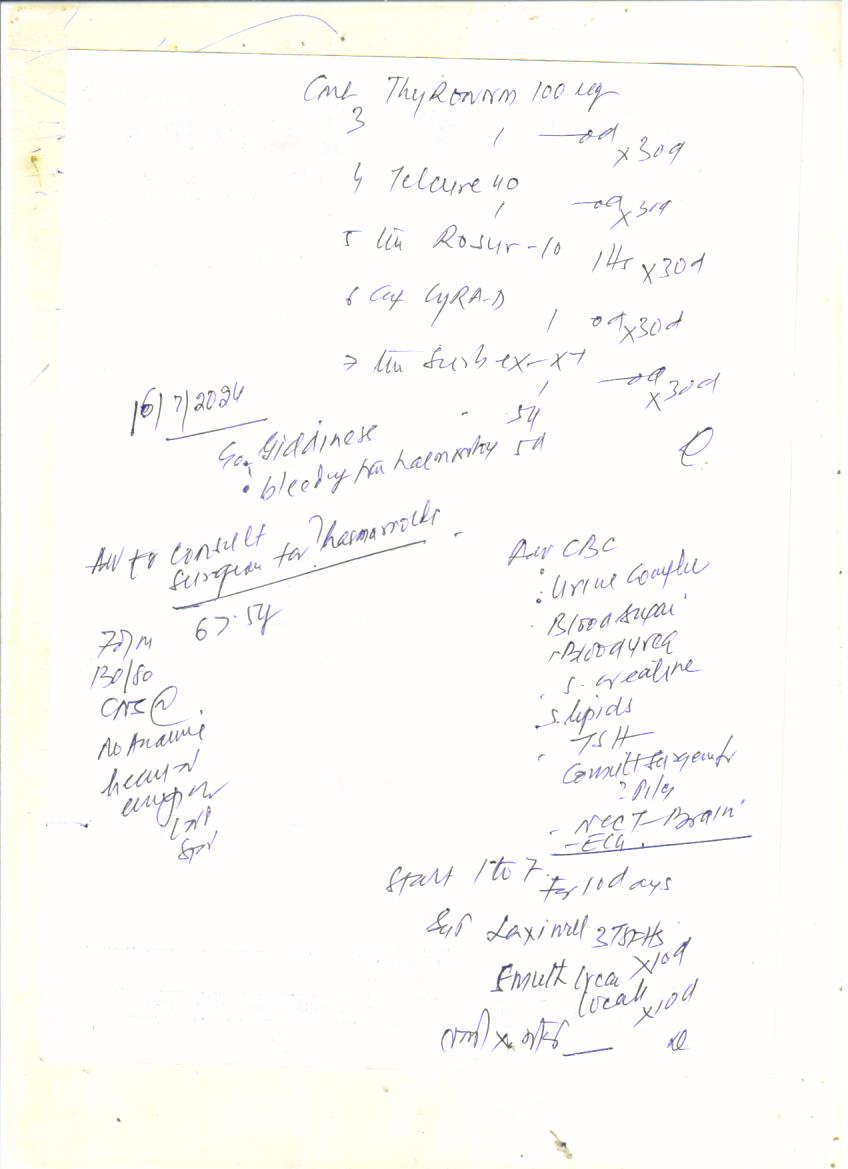 Cont
3 Thyronorm 100 ug
1 — od x 30d
4 Telcure 40
1 — od x 30d
5 tab Rosur-10 1 Hs x 30d
6 Cap CyRA-D
1 od x 30d
7 tab Surbex-XT
1 — od x 30d
16/7/2024
Giddiness - 5d
• bleeding from haemorrhoids 5d
Adv to consult
surgeon for ? haemorroids
67.5kg
70/m
130/80
CNS N
No Anaemia
Adv CBC
: Urine Complete
. Blood sugar
- Blood urea
. S. creatine
. S. lipids
- TSH
Consult surgeon for
? Piles
- NCCT-Brain
- ECG.
Start 1 to 7
for 10 days
Syp Laxiwell 3 TSF HS
x 10d
cream
locall
x 10d